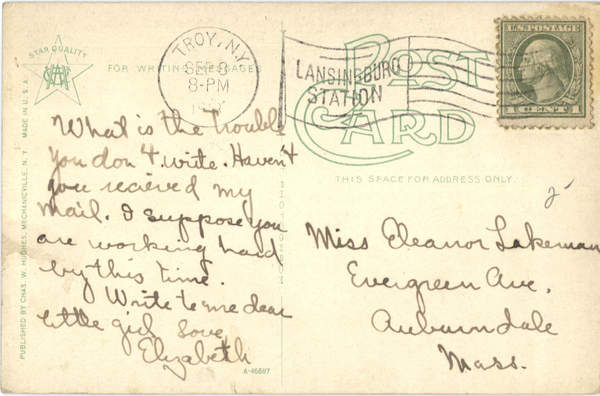 STAR QUALITY
FOR WRITING MESSAGES
TROY, N.Y.
SEP 8
8-PM
LANSINGBURG
STATION
POST
CARD
U.S. POSTAGE
1 CENT 1
THIS SPACE FOR ADDRESS ONLY.
What is the trouble
you don't write. Haven't
you recieved my
mail. I suppose you
are working hard
by this time.
Write to me dear
little girl Love
Elizabeth
Miss Eleanor Lakeman
Evergreen Ave,
Auburndale
Mass.
PUBLISHED BY CHAS. W. HUGHES, MECHANICVILLE, N. Y. MADE IN U. S. A.
A-46687